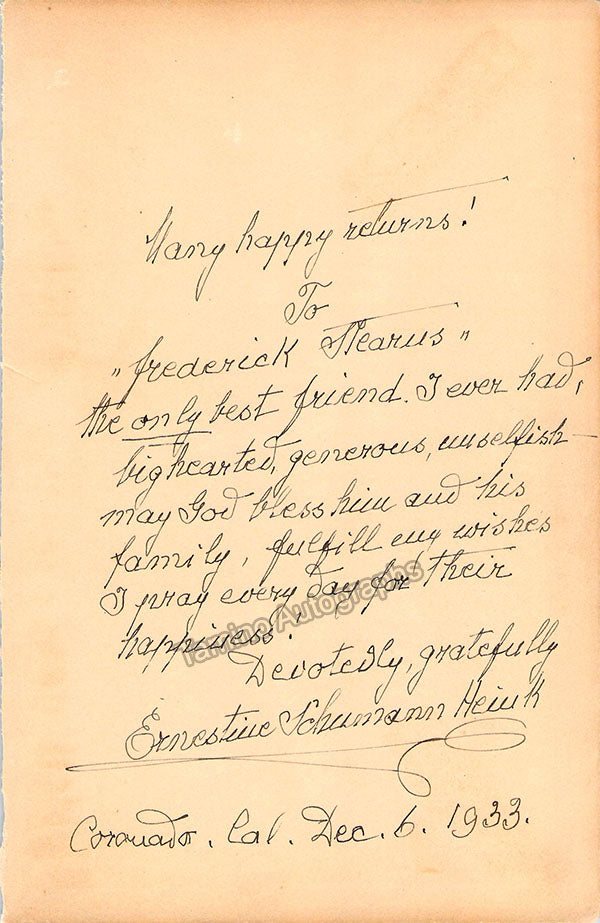 Many happy returns!
To
„Frederick Stearns"
the only best friend. I ever had,
bighearted, generous, unselfish—
may God bless him and his
family, fulfill my wishes
I pray every day for their
happiness!
Tamino Autographs
Devotedly, gratefully
Ernestine Schumann Heink
Coronado. Cal. Dec. 6. 1933.